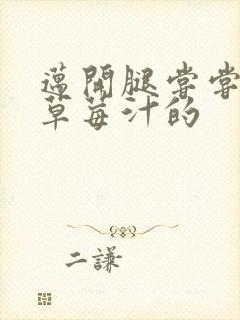 邁開腿嘗嘗
草莓汁的
二謙